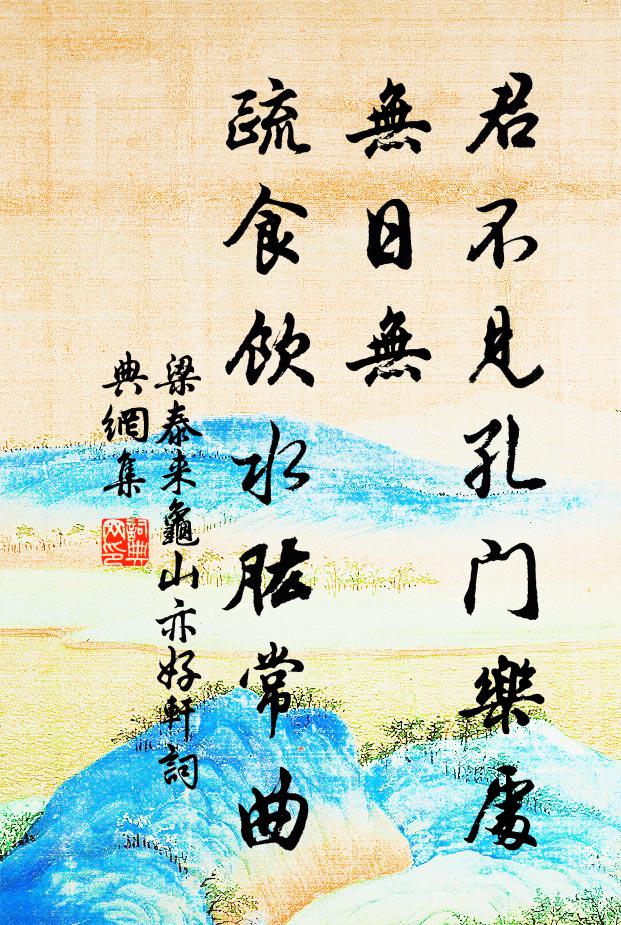 君不見孔门樂處
無日無
疏食飲水肱常曲
梁泰来龜山亦好軒詞
典網集
詞典网印